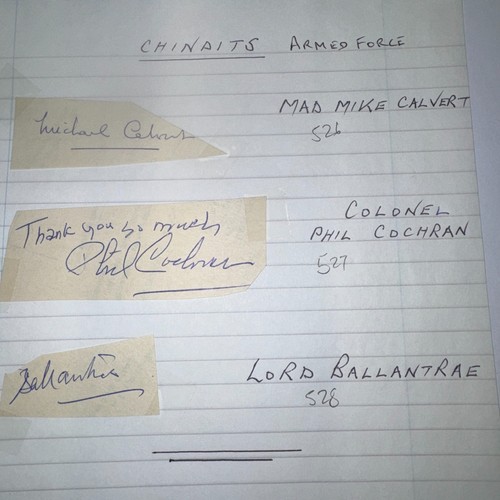 CHINDITS ARMED FORCE
MAD MIKE CALVERT
Michael Calvert
526
COLONEL
PHIL COCHRAN
Thank you so much
Phil Cochran
527
LORD BALLANTRAE
Ballantrae
528